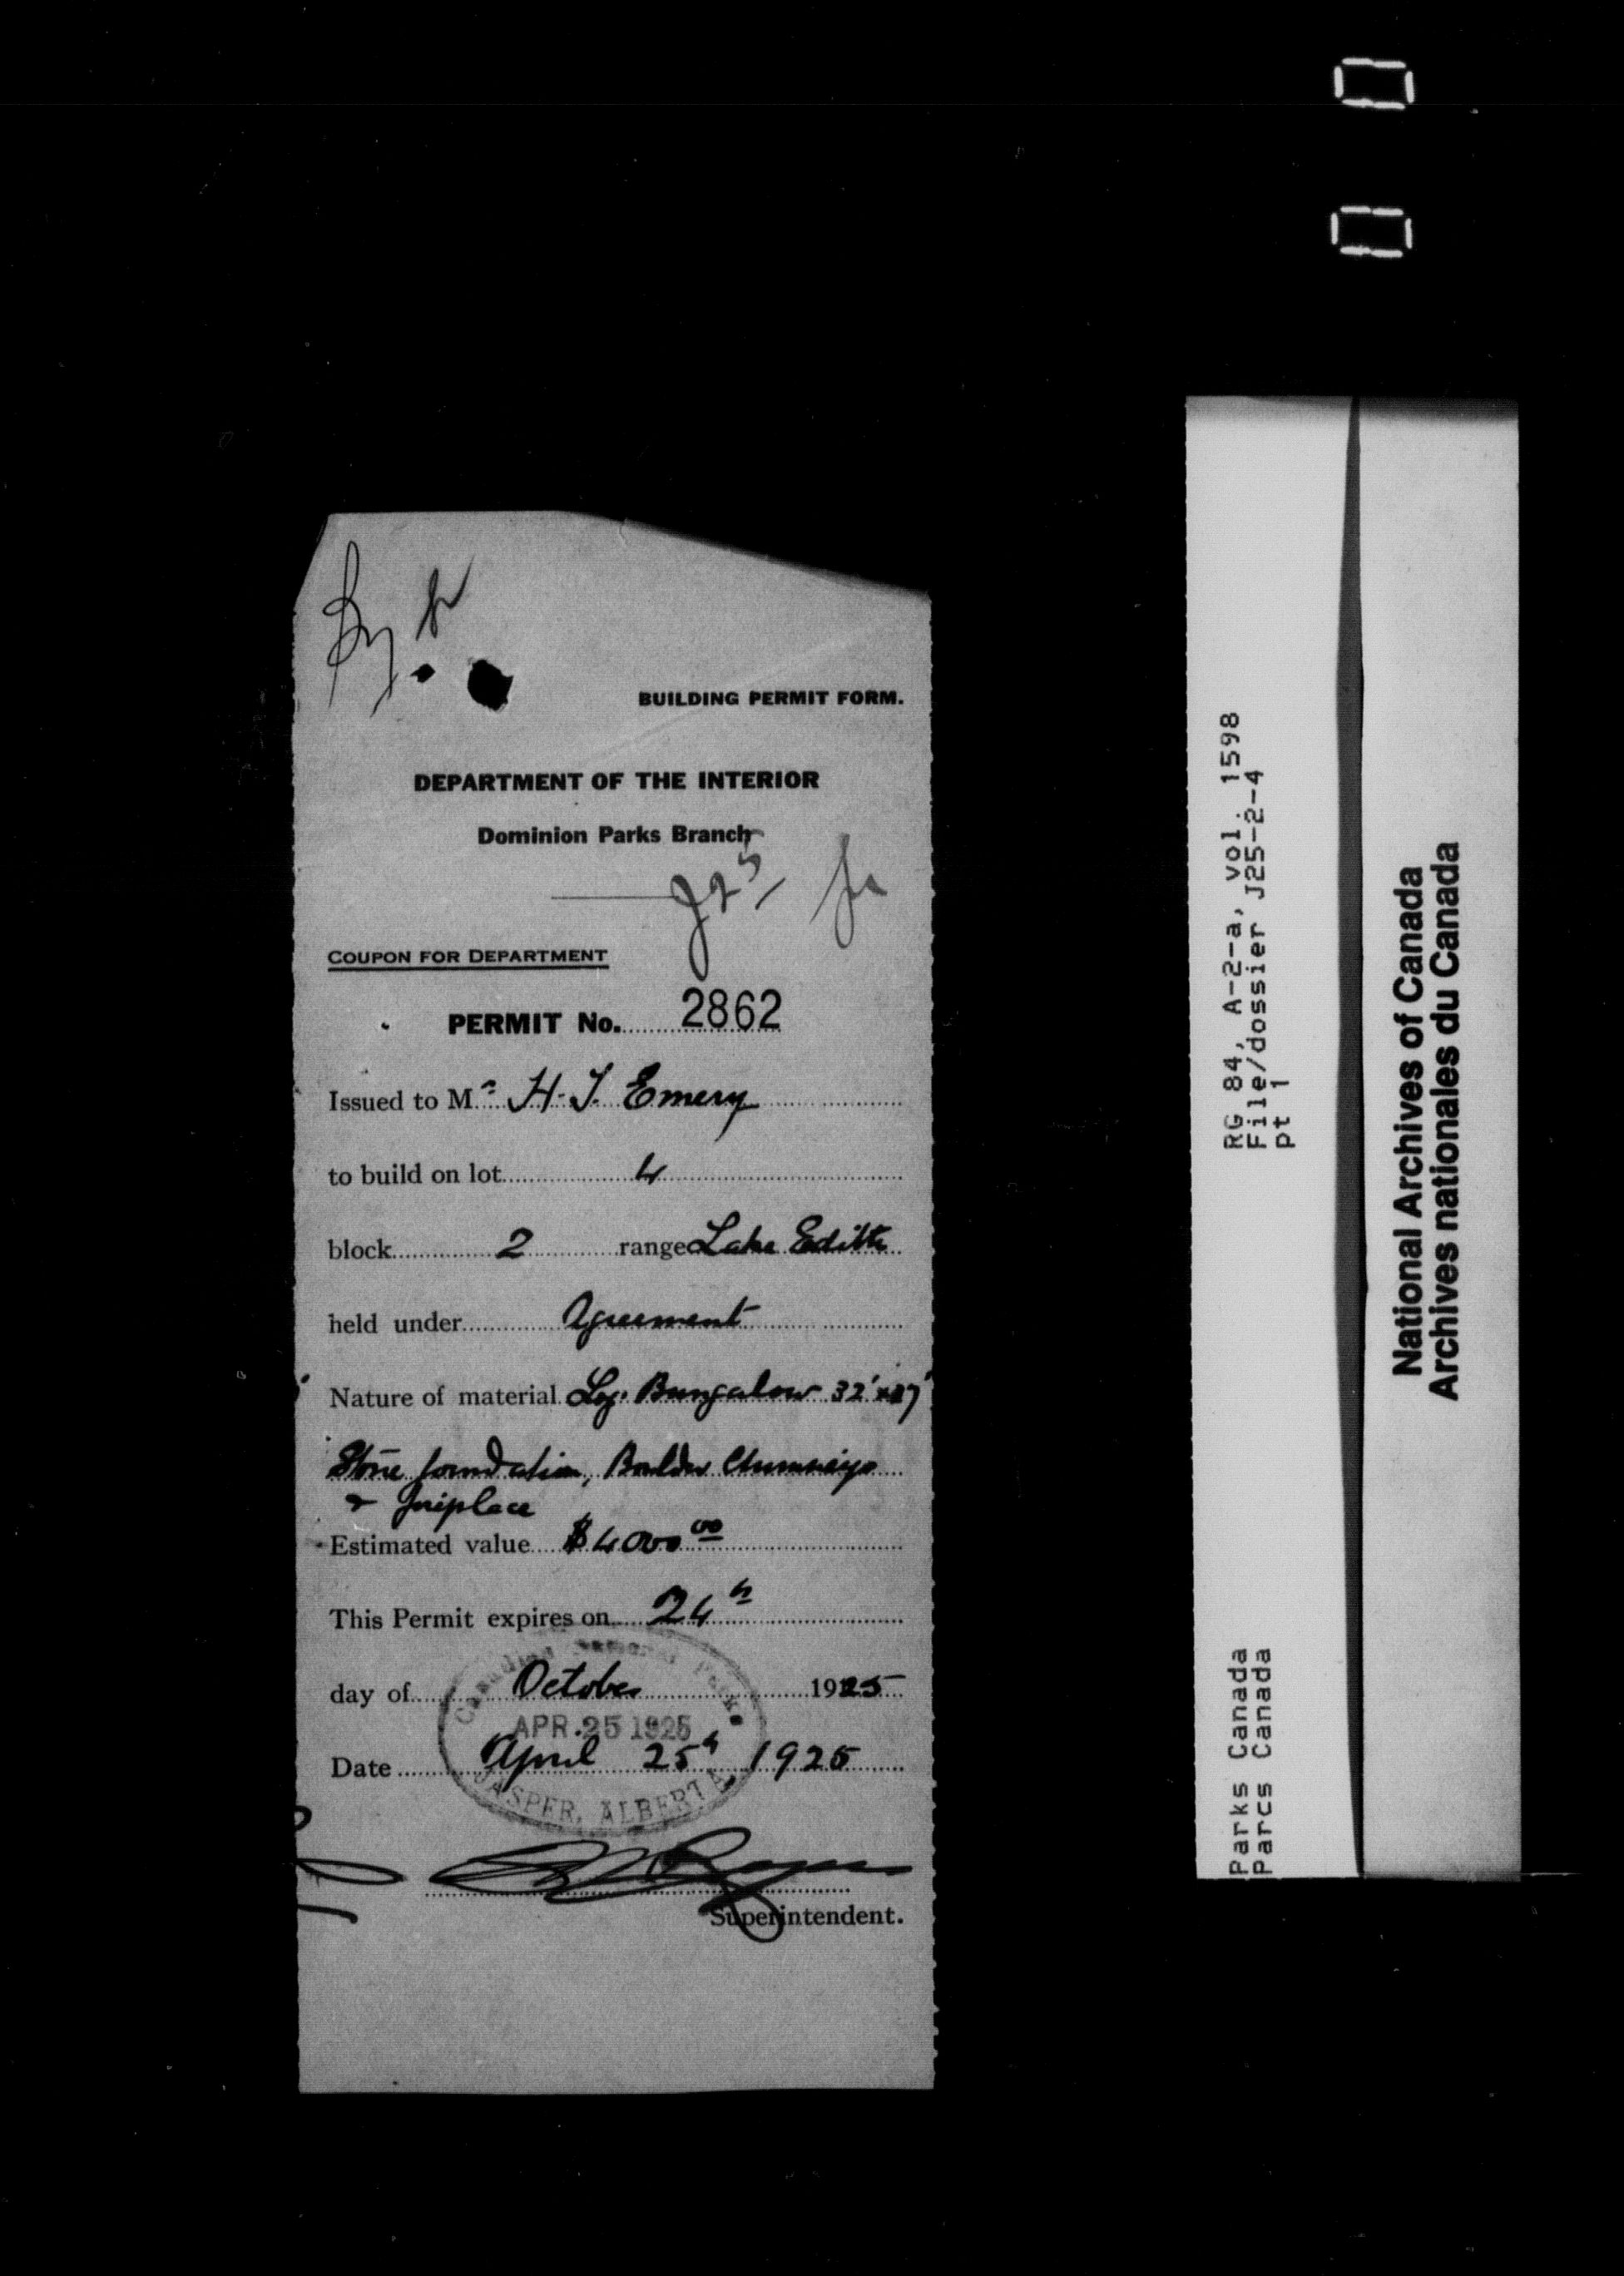 BUILDING PERMIT FORM.
DEPARTMENT OF THE INTERIOR
Dominion Parks Branch
J25
COUPON FOR DEPARTMENT
PERMIT No. 2862
Issued to Mr H. J. Emery
to build on lot 4
block 2 range Lake Edith
held under Agreement
Nature of material Log Bungalow 32' x 27'
Stone foundation, Boulder Chimneys
& fireplace
Estimated value $4000 00
This Permit expires on 24th
day of October 1925
Canadian National Parks
APR 25 1925
JASPER, ALBERTA
Date April 25th 1925
Superintendent.
RG 84, A-2-a, vol. 1598
File/dossier J25-2-4
pt 1
Parks Canada
Parcs Canada
National Archives of Canada
Archives nationales du Canada